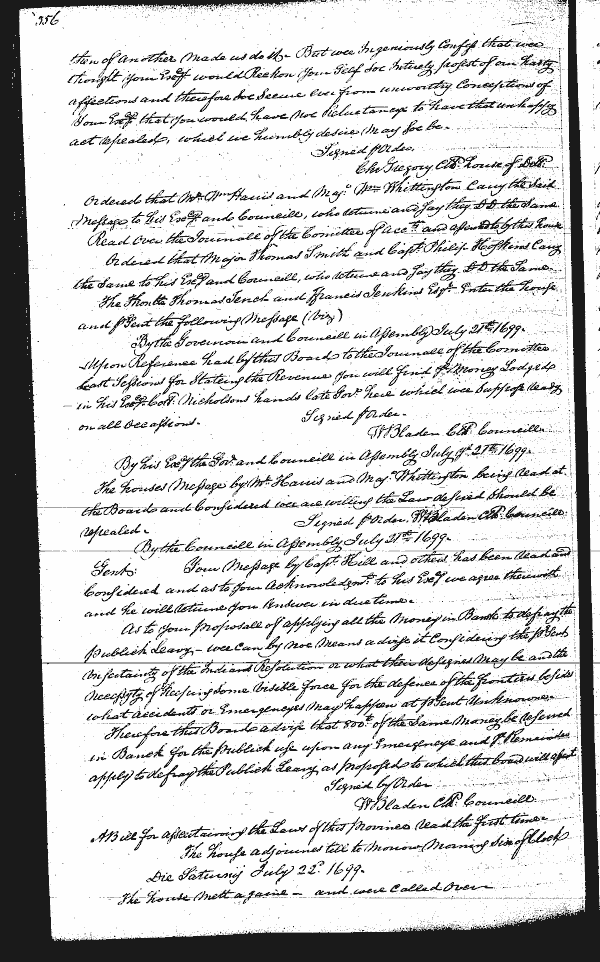 356
tion of Another made us do it. But wee Ingeniously Confess that wee
thought your Excy would Reckon your Self soe Intirely possest of our hearty
affections and therefore soe Secure ever from unworthy Conceptions of
Your Excy that you would have noe Reluctancy to have that unhappy
act repealed, which we humbly desire may soe be.
Signed p Order.
Chr Gregory Clk house of Delts
Ordered that Mr Wm Harris and Majr Wm Whittington Carry the said
Message to his Excy and Councill, who returne and say they DD the Same
Read over the Journall of the Comittee of Acctts and assented to by this house
Ordered that Major Thomas Smith and Capt Philip Hoskins Carry
the Same to his Excy and Councill, who returne and say they DD the Same
The Honble Thomas Tench and Francis Jenkins Esqrs Enter the house
and psent the following Message (viz)
By the Governour and Councill in Assembly July 21th 1699.
Upon Reference had by this Board to the Journall of the Comittee
Last Sessions for Stateing the Revenue you will find ye Money Lodged
in his Excy Coll Nicholsons hands late Govr here which wee Suppose ready
on all Occassions. Signed p Order.
W Bladen Clk Councill.
By his Excy the Govr and Councill in Assembly July ye 21th 1699.
The houses Message by Mr Harris and Majr Whittington being read at
the Board and Considered wee are willing the Law desired should be
repealed. Signed p Order. W Bladen Clk Councill
By the Councill in Assembly July 21th 1699.
Gent. Your Message by Capt Hill and others has been read and
Considered and as to your Acknowledgmt to his Excy we agree therewith
and he will returne your Answer in due time.
As to your proposall of applying all the Money in Banck to defray the
Publick Leavy, wee can by noe Means advise it Considering the psent
incertainty of the Indians Resolution or what their designes may be and the
necessity of keeping some visible force for the defence of the frontiers besides
what accidents or Emergencyes may happen at psent Unknowne.
Therefore this Board advise that 800l of the Same Money be reserved
in Banck for the Publick use upon any Emergencye and ye Remainder
apply to defray the Publick Leavy as proposed to which this board will assent
Signed by Order
W Bladen Clk Councill
A Bill for assertaining the Laws of this Province read the first time
The house adjournes till to Morrow Morning Six of Clock
Die Saturnij July 22d 1699.
The house mett againe and were Called over